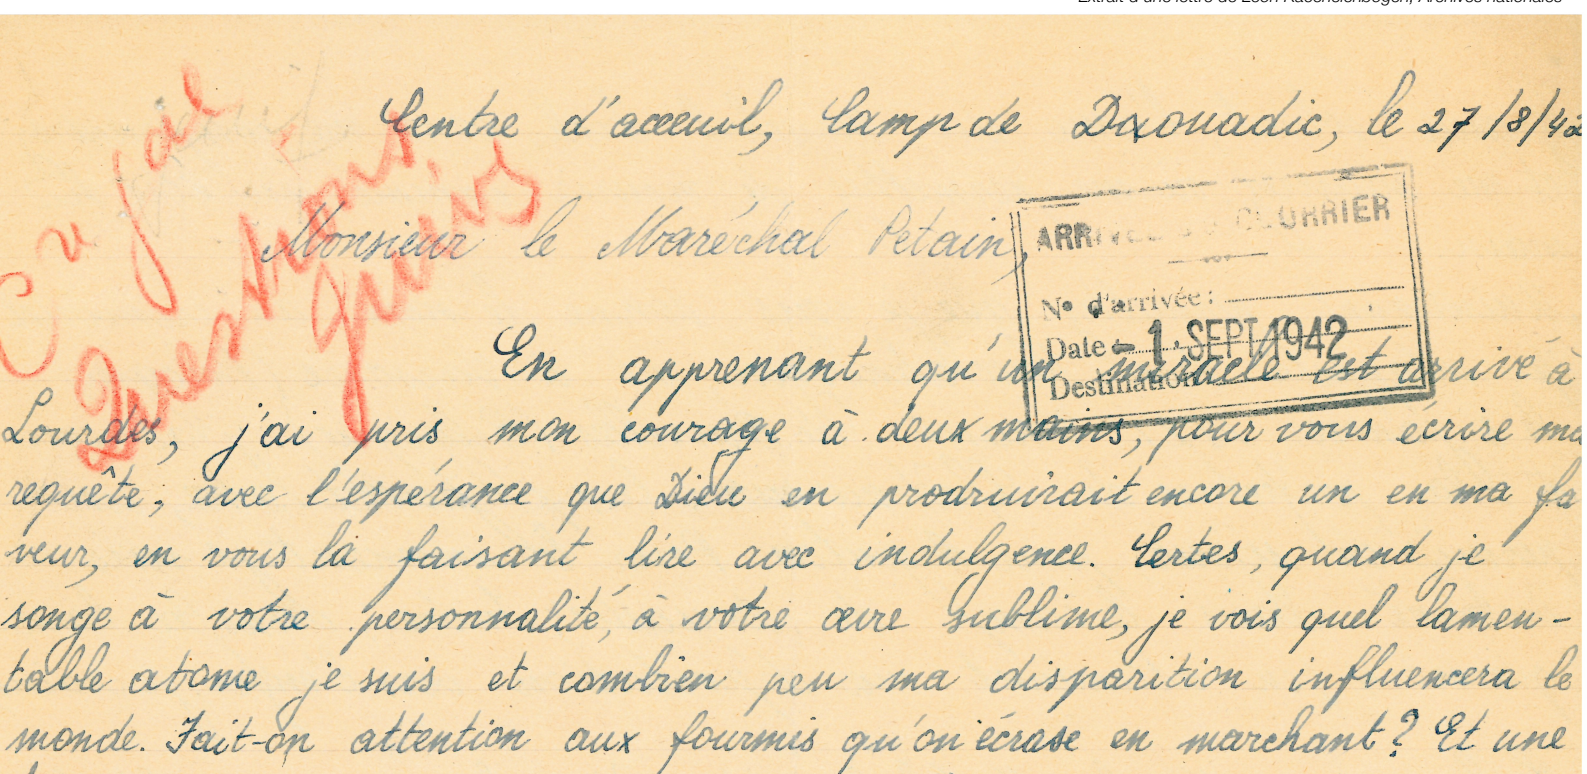 Extrait d'une lettre de Léon Kacenelenbogen, Archives nationales
Centre d'acceuil, Camp de Drouadic, le 27/8/42
Monsieur le Maréchal Petain,
Questions
juives
ARRIVÉE DU COURRIER
N° d'arrivée :
Date - 1. SEPT 1942
Destination
En apprenant qu'un miracle est arrivé à
Lourdes, j'ai pris mon courage à deux mains, pour vous écrire ma
requête, avec l'espérance que Dieu en prodruirait encore un en ma fa
veur, en vous la faisant lire avec indulgence. Certes, quand je
songe à votre personnalité, à votre œuvre sublime, je vois quel lamen-
table atome je suis et combien peu ma disparition influencera le
monde. Fait-on attention aux fourmis qu'on écrase en marchant? Et une